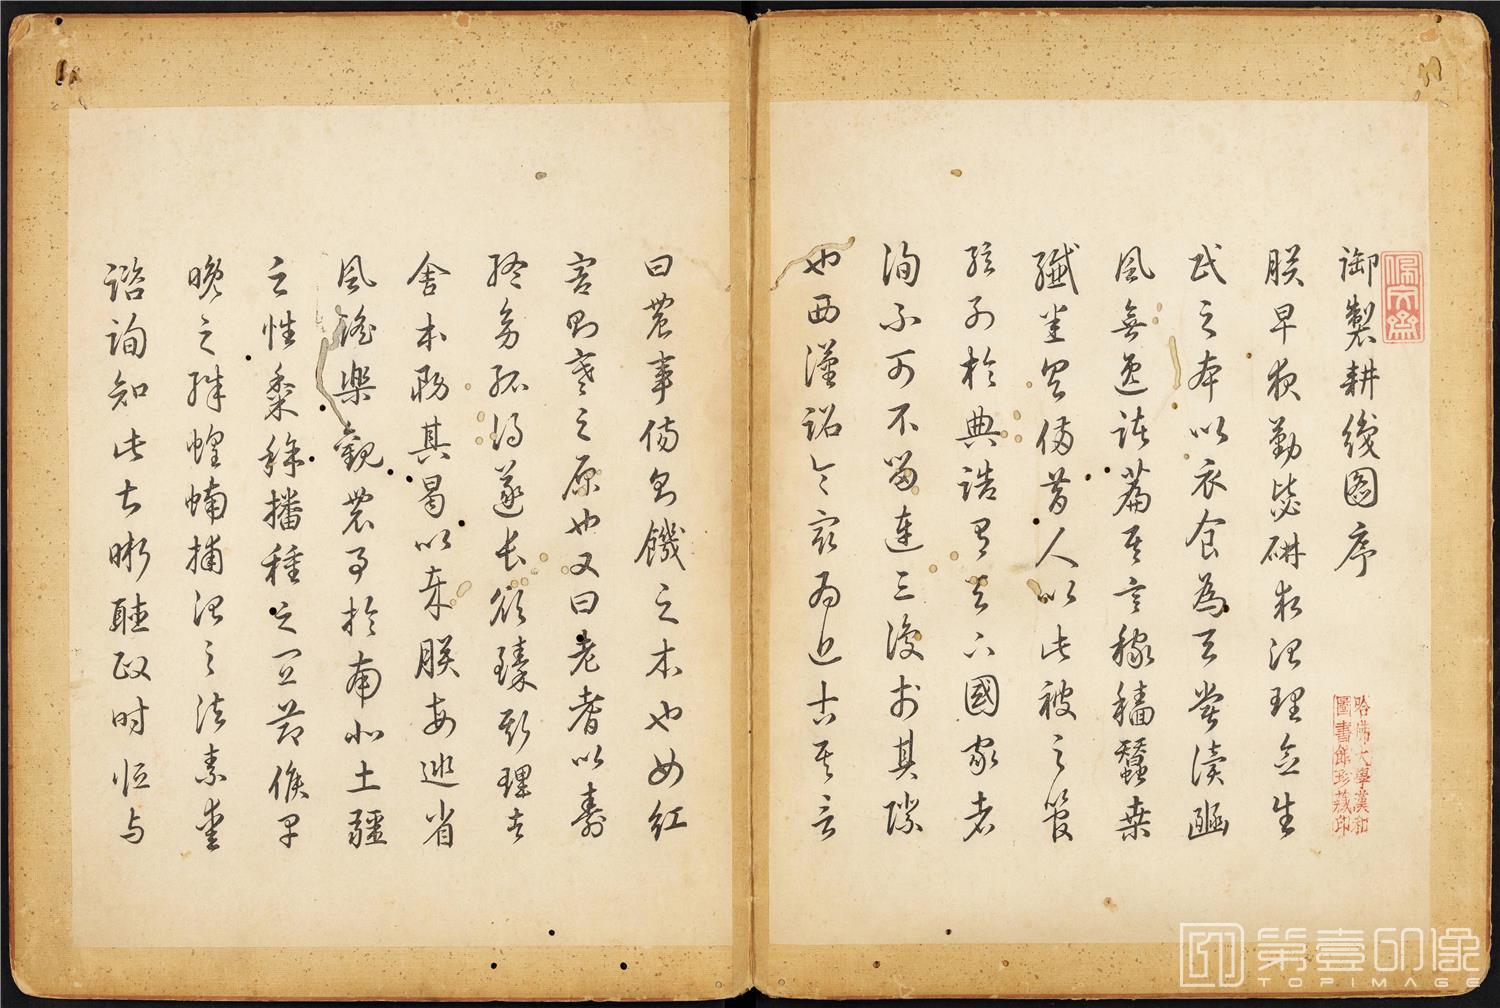 佩文齋
御製耕織圖序
朕早夜勤毖研求治理念生
民之本以衣食為天嘗讀豳
風無逸諸篇其言稼穡蠶桑
纖悉具備昔人以此被之管
弦列於典誥有天下國家者
洵不可不留連三復於其際
也西漢詔令最為近古其言
曰農事傷則饑之本也女紅
害則寒之原也又曰老耆以壽
終幼孤得遂長欲臻斯理者
舍本務其曷以哉朕每巡省
風謠樂觀農事於南北土疆
之性黍稌播種之宜節候早
晚之殊蝗蝻捕治之法素愛
諮詢知此甚晰聽政時恒與
哈佛大學漢和
圖書館珍藏印
第壹印像
TOPIMAGE